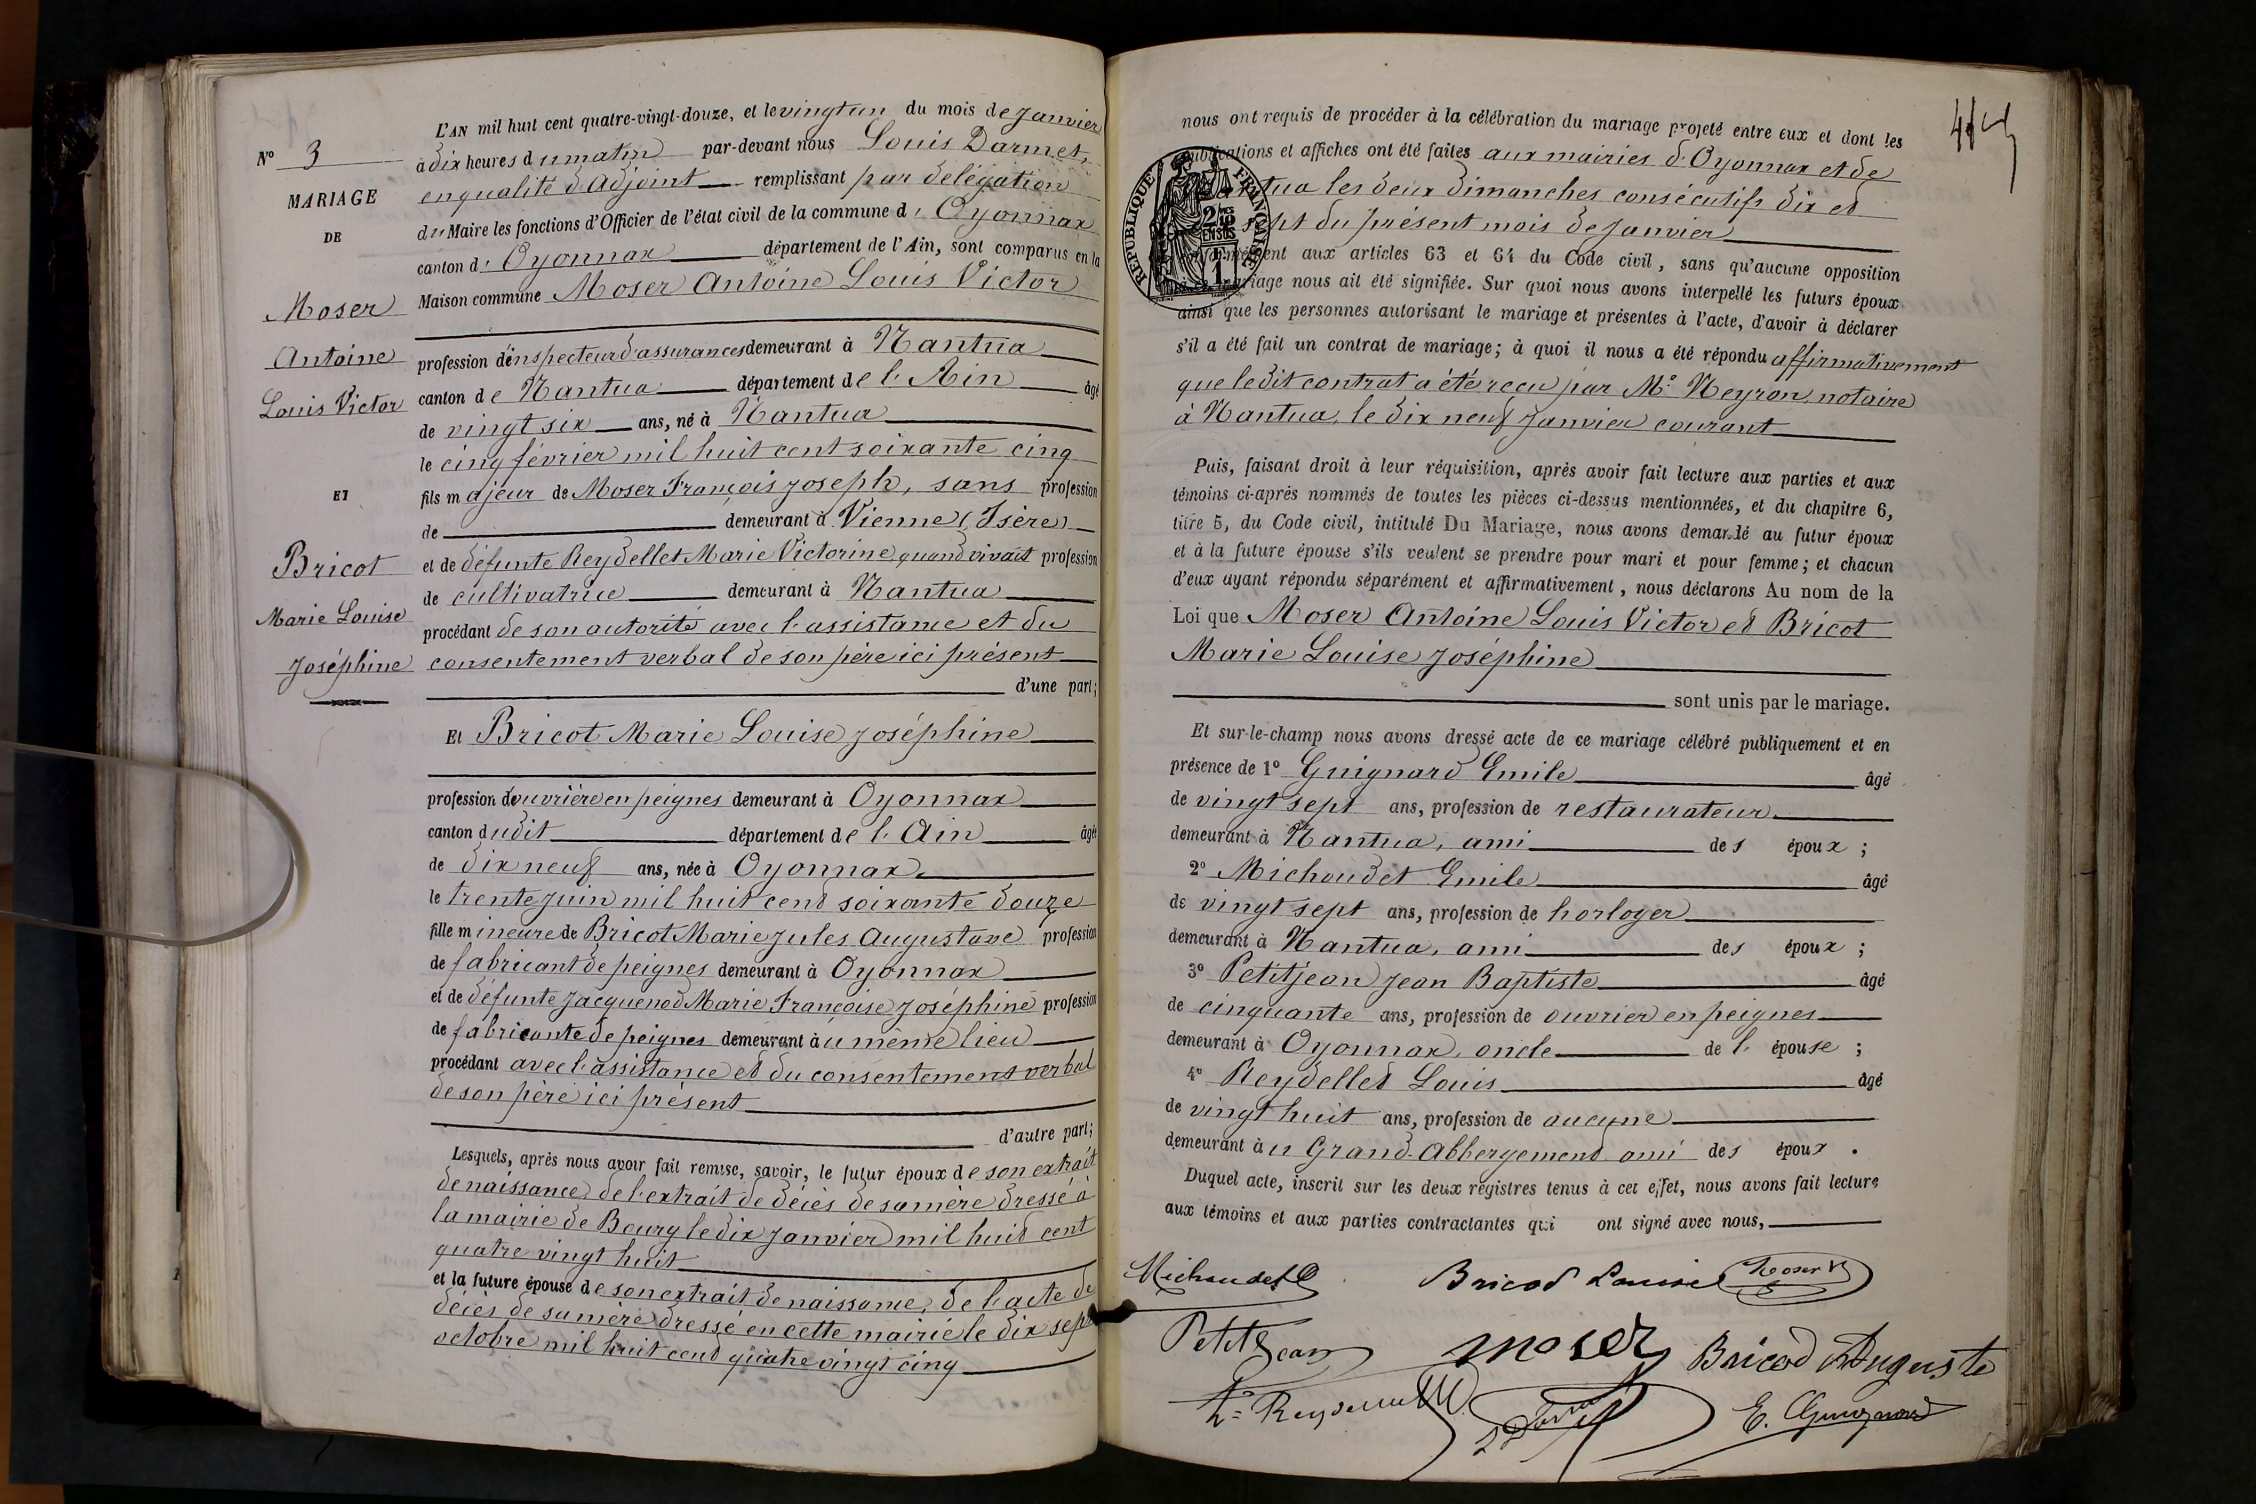 N° 3
MARIAGE
DE
Moser
Antoine
Louis Victor
ET
Bricot
Marie Louise
Joséphine
L'AN mil huit cent quatre-vingt-douze, et le vingt un du mois de Janvier
à dix heures du matin par-devant nous Louis Darmet,
en qualité d'Adjoint remplissant par délégation
du Maire les fonctions d'Officier de l'état civil de la commune d'Oyonnax
canton d'Oyonnax département de l'Ain, sont comparus en la
Maison commune Moser Antoine Louis Victor
profession d'inspecteur d'assurances demeurant à Nantua
canton de Nantua département de l'Ain âgé
de vingt six ans, né à Nantua
le cinq février mil huit cent soixante cinq
fils majeur de Moser François Joseph, sans profession
de demeurant à Vienne (Isère)
et de défunte Reydellet Marie Victorine quand vivait profession
de cultivatrice demeurant à Nantua
procédant de son autorité avec l'assistance et du
consentement verbal de son père ici présent
d'une part;
Et Bricot Marie Louise Joséphine
profession de ouvrière en peignes demeurant à Oyonnax
canton dudit département de l'Ain âgée
de dix neuf ans, née à Oyonnax
le trente juin mil huit cent soixante douze
fille mineure de Bricot Marie Jules Augustave profession
de fabricant de peignes demeurant à Oyonnax
et de défunte Jacquenod Marie Françoise Joséphine profession
de fabricante de peignes demeurant à u même lieu
procédant avec l'assistance et du consentement verbal
de son père ici présent
d'autre part;
Lesquels, après nous avoir fait remise, savoir, le futur époux de son extrait
de naissance, de l'extrait de décès de sa mère dressé à
la mairie de Bourg le dix janvier mil huit cent
quatre vingt huit
et la future épouse de son extrait de naissance, de l'acte de
décès de sa mère dressé en cette mairie le dix sept
octobre mil huit cent quatre vingt cinq
nous ont requis de procéder à la célébration du mariage projeté entre eux et dont les
publications et affiches ont été faites aux mairies d'Oyonnax et de
Nantua les deux dimanches consécutifs dix et
sept du présent mois de Janvier
conformément aux articles 63 et 64 du Code civil, sans qu'aucune opposition
mariage nous ait été signifiée. Sur quoi nous avons interpellé les futurs époux
ainsi que les personnes autorisant le mariage et présentes à l'acte, d'avoir à déclarer
s'il a été fait un contrat de mariage; à quoi il nous a été répondu affirmativement
que le dit contrat a été reçu par Me Neyron, notaire
à Nantua, le dix neuf Janvier courant
RÉPUBLIQUE FRANÇAISE
2/10
EN SUS
1F
Puis, faisant droit à leur réquisition, après avoir fait lecture aux parties et aux
témoins ci-après nommés de toutes les pièces ci-dessus mentionnées, et du chapitre 6,
titre 5, du Code civil, intitulé Du Mariage, nous avons demandé au futur époux
et à la future épouse s'ils veulent se prendre pour mari et pour femme; et chacun
d'eux ayant répondu séparément et affirmativement, nous déclarons Au nom de la
Loi que Moser Antoine Louis Victor et Bricot
Marie Louise Joséphine
sont unis par le mariage.
Et sur-le-champ nous avons dressé acte de ce mariage célébré publiquement et en
présence de 1° Guignard Emile âgé
de vingt sept ans, profession de restaurateur
demeurant à Nantua, ami des époux;
2° Michoudet Emile âgé
de vingt sept ans, profession de horloger
demeurant à Nantua, ami des époux;
3° Petitjean Jean Baptiste âgé
de cinquante ans, profession de ouvrier en peignes
demeurant à Oyonnax, oncle de l'épouse;
4° Reydellet Louis âgé
de vingt huit ans, profession de aucune
demeurant à u Grand-Abbergement ami des époux.
Duquel acte, inscrit sur les deux registres tenus à cet effet, nous avons fait lecture
aux témoins et aux parties contractantes qui ont signé avec nous,
Michoudet E Bricot Louise Moser V
Petitjean Moser Bricod Auguste
Ls Reydellet L Darmet E. Guignard